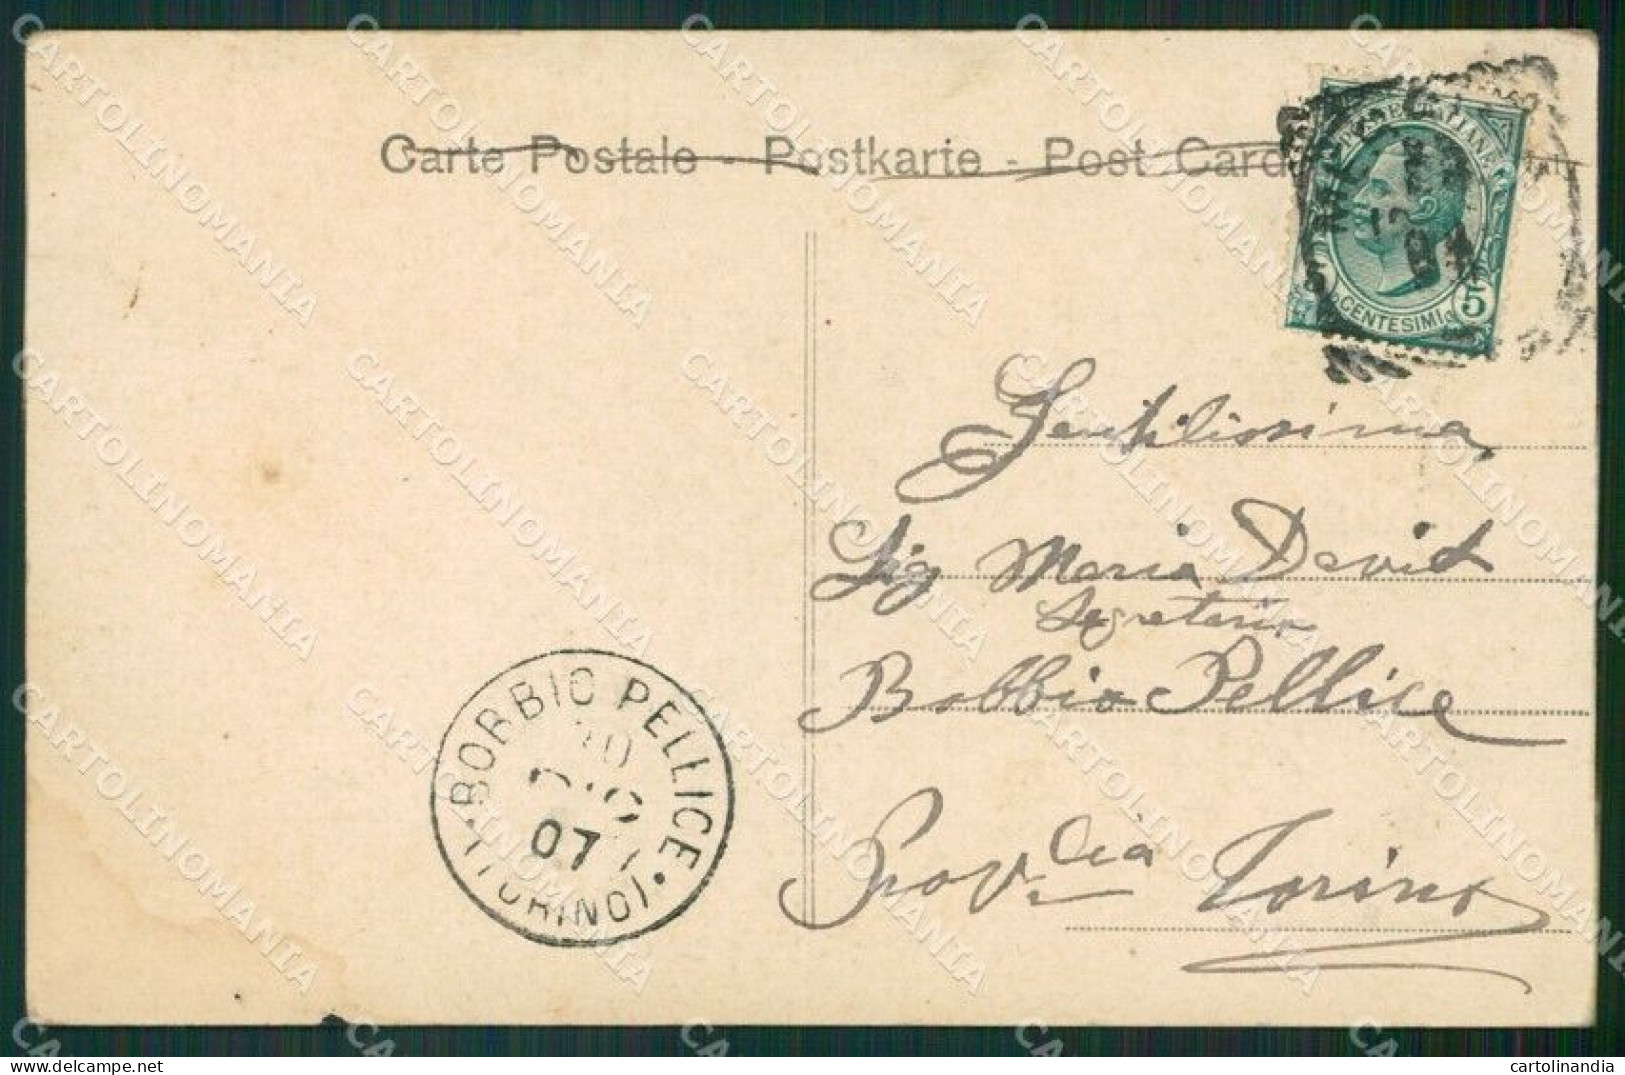 Carte Postale - Postkarte - Post Card
POSTE ITALIANE
CENTESIMI 5
Gentilissima
Sig Maria David
Segretario
Bobbio Pellice
Prov.cia Torino
BOBBIO PELLICE
10
DIC
07
(TORINO)
CARTOLINOMANIA
cartolinandia